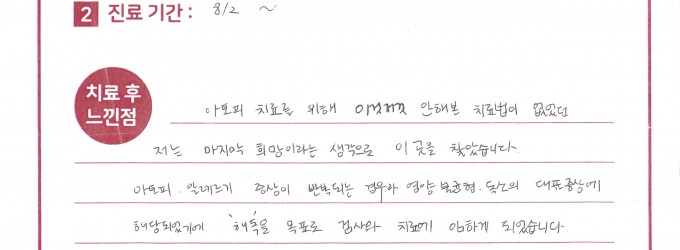 2 진료 기간 : 8/2 ~
치료 후
느낀점
아토피 치료를 위해 이것저것 안해본 치료법이 없었던
저는 마지막 희망이라는 생각으로 이 곳을 찾았습니다.
아토피. 알레르기 증상이 반복되는 경우와 영양 불균형. 독소의 대표증상에
해당되었기에 '해독'을 목표로 검사와 치료에 임하게 되었습니다.